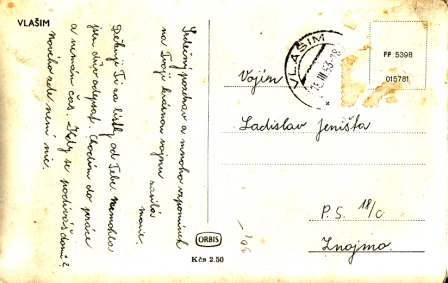 VLAŠIM
Srdečný pozdrav a mnoho vzpomínek
na Tvoji krásnou vojnu zasílá
Marie.
Děkuji Ti za lístky od Tebe nemohla
jsem dříve odepsat. Chodím do práce
a nemám čas. Kdy se podíváš domů?
Nového zde není nic.
ORBIS
Kčs 2.50
VLAŠIM
16.III.53-18
FP 5398
015781
Vojín
Ladislav Jeništa
P.S. 18/c
Znojmo.